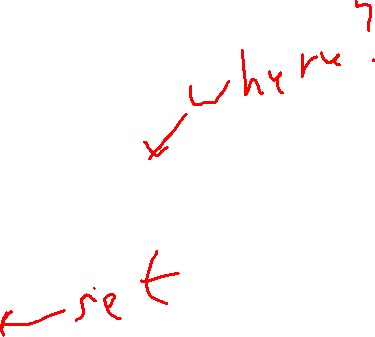 where?
set